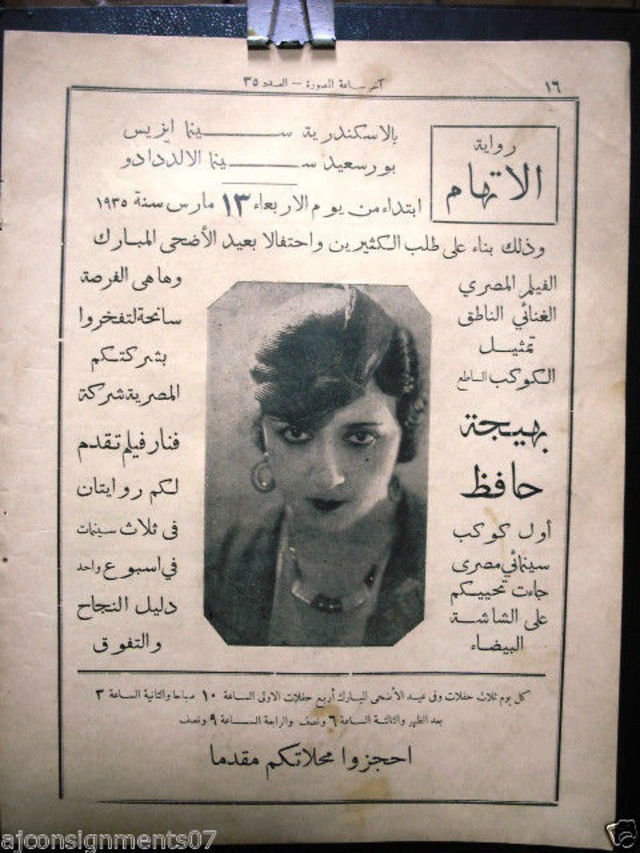 ١٦
آخر ساعة المصورة — العدد ٣٥
رواية
الاتهام
بالاسكندرية ســـينما ايزيس
بورسعيد ســـينما الالددادو
ابتداء من يوم الاربعاء ١٣ مارس سنة ١٩٣٥
وذلك بناء على طلب الكثيرين واحتفالا بعيد الأضحى المبارك
الفيلم المصرى
الغنائي الناطق
تمثيل
الكوكب الساطع
بهيجة
حافظ
أول كوكب
سينمائى مصرى
جاءت تحييكم
على الشاشة
البيضاء
وهاهى الفرصة
سانحة لتفخروا
بشركتكم
المصرية شركة
فنار فيلم تقدم
لكم روايتان
فى ثلاث سينمات
في اسبوع واحد
دليل النجاح
والتفوق
كل يوم ثلاث حفلات وفى عيد الأضحى المبارك أربع حفلات الاولى الساعة ١٠ صباحا والثانية الساعة ٣
بعد الظهر والثالثة الساعة ٦ ونصف والرابعة الساعة ٩ ونصف
احجزوا محلاتكم مقدما
ajconsignments07